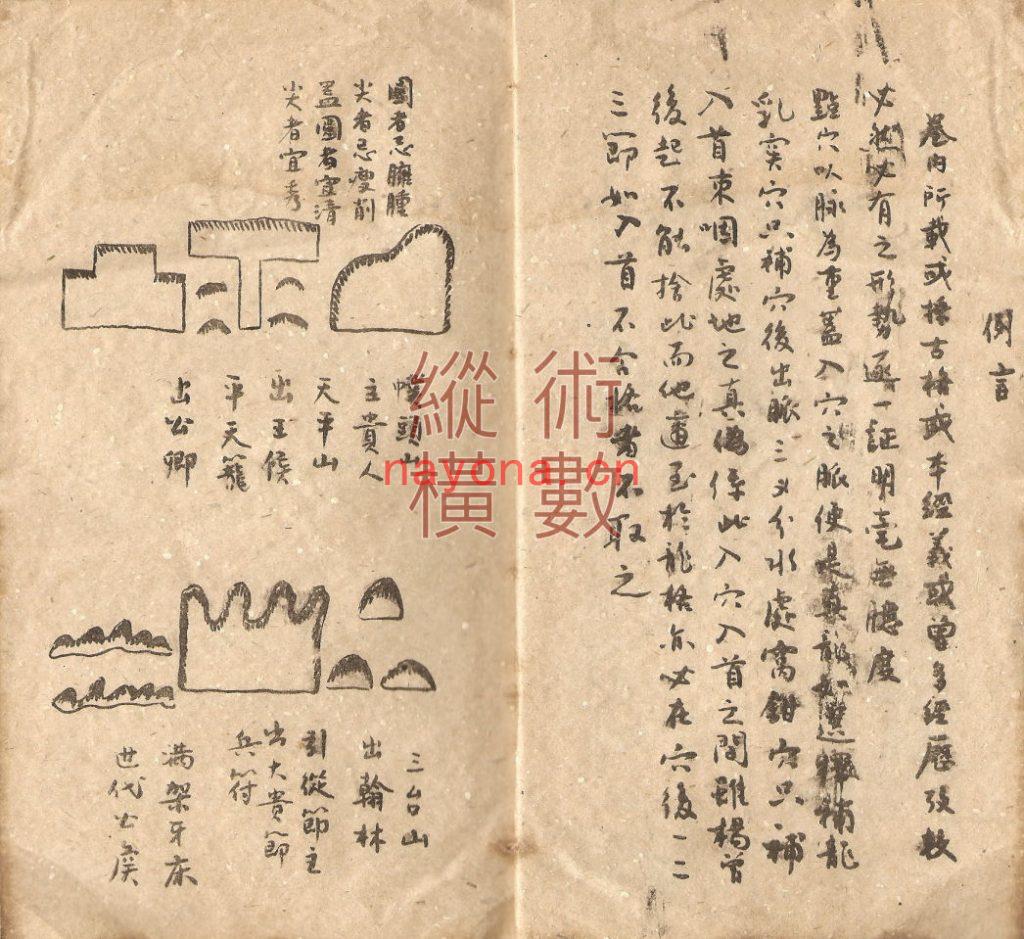 例言
卷內所載或標古格或本經義或曾多經歷攷校
必然必有之形勢逐一証明毫無臆度
點穴以脉為重蓋入穴之脈便是真龍如選擇補龍
乳突穴只補穴後出脈三义分水處窩鉗穴只補
入首束咽處地之真偽係此入穴入首之間雖楊曾
後起不能捨此而他適至於龍格亦必在穴後一二
三節如入首不合格者不取之
圓者忌臃腫
尖者忌瘦削
蓋圓者宜清
尖者宜秀
幞頭山
主貴人
天平山
出王侯
平天籠
出公卿
三台山
出翰林
引從節主
出大貴節
兵符
满架牙床
世代公侯
術數
縱橫
nayona.cn